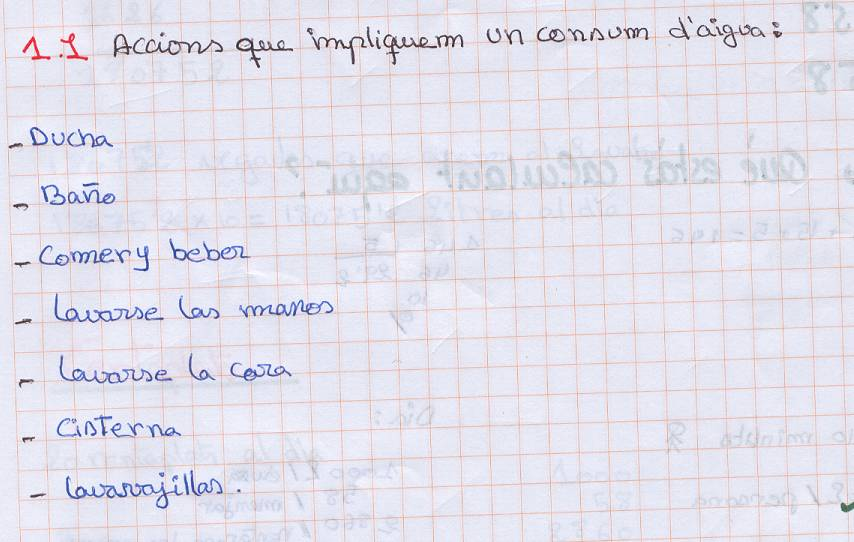 1.1 Accions que impliquem un consum d'aigua:
- Ducha
- Baño
- Comer y beber
- lavarse las manos
- lavarse la cara
- Cisterna
- lavavajillas.